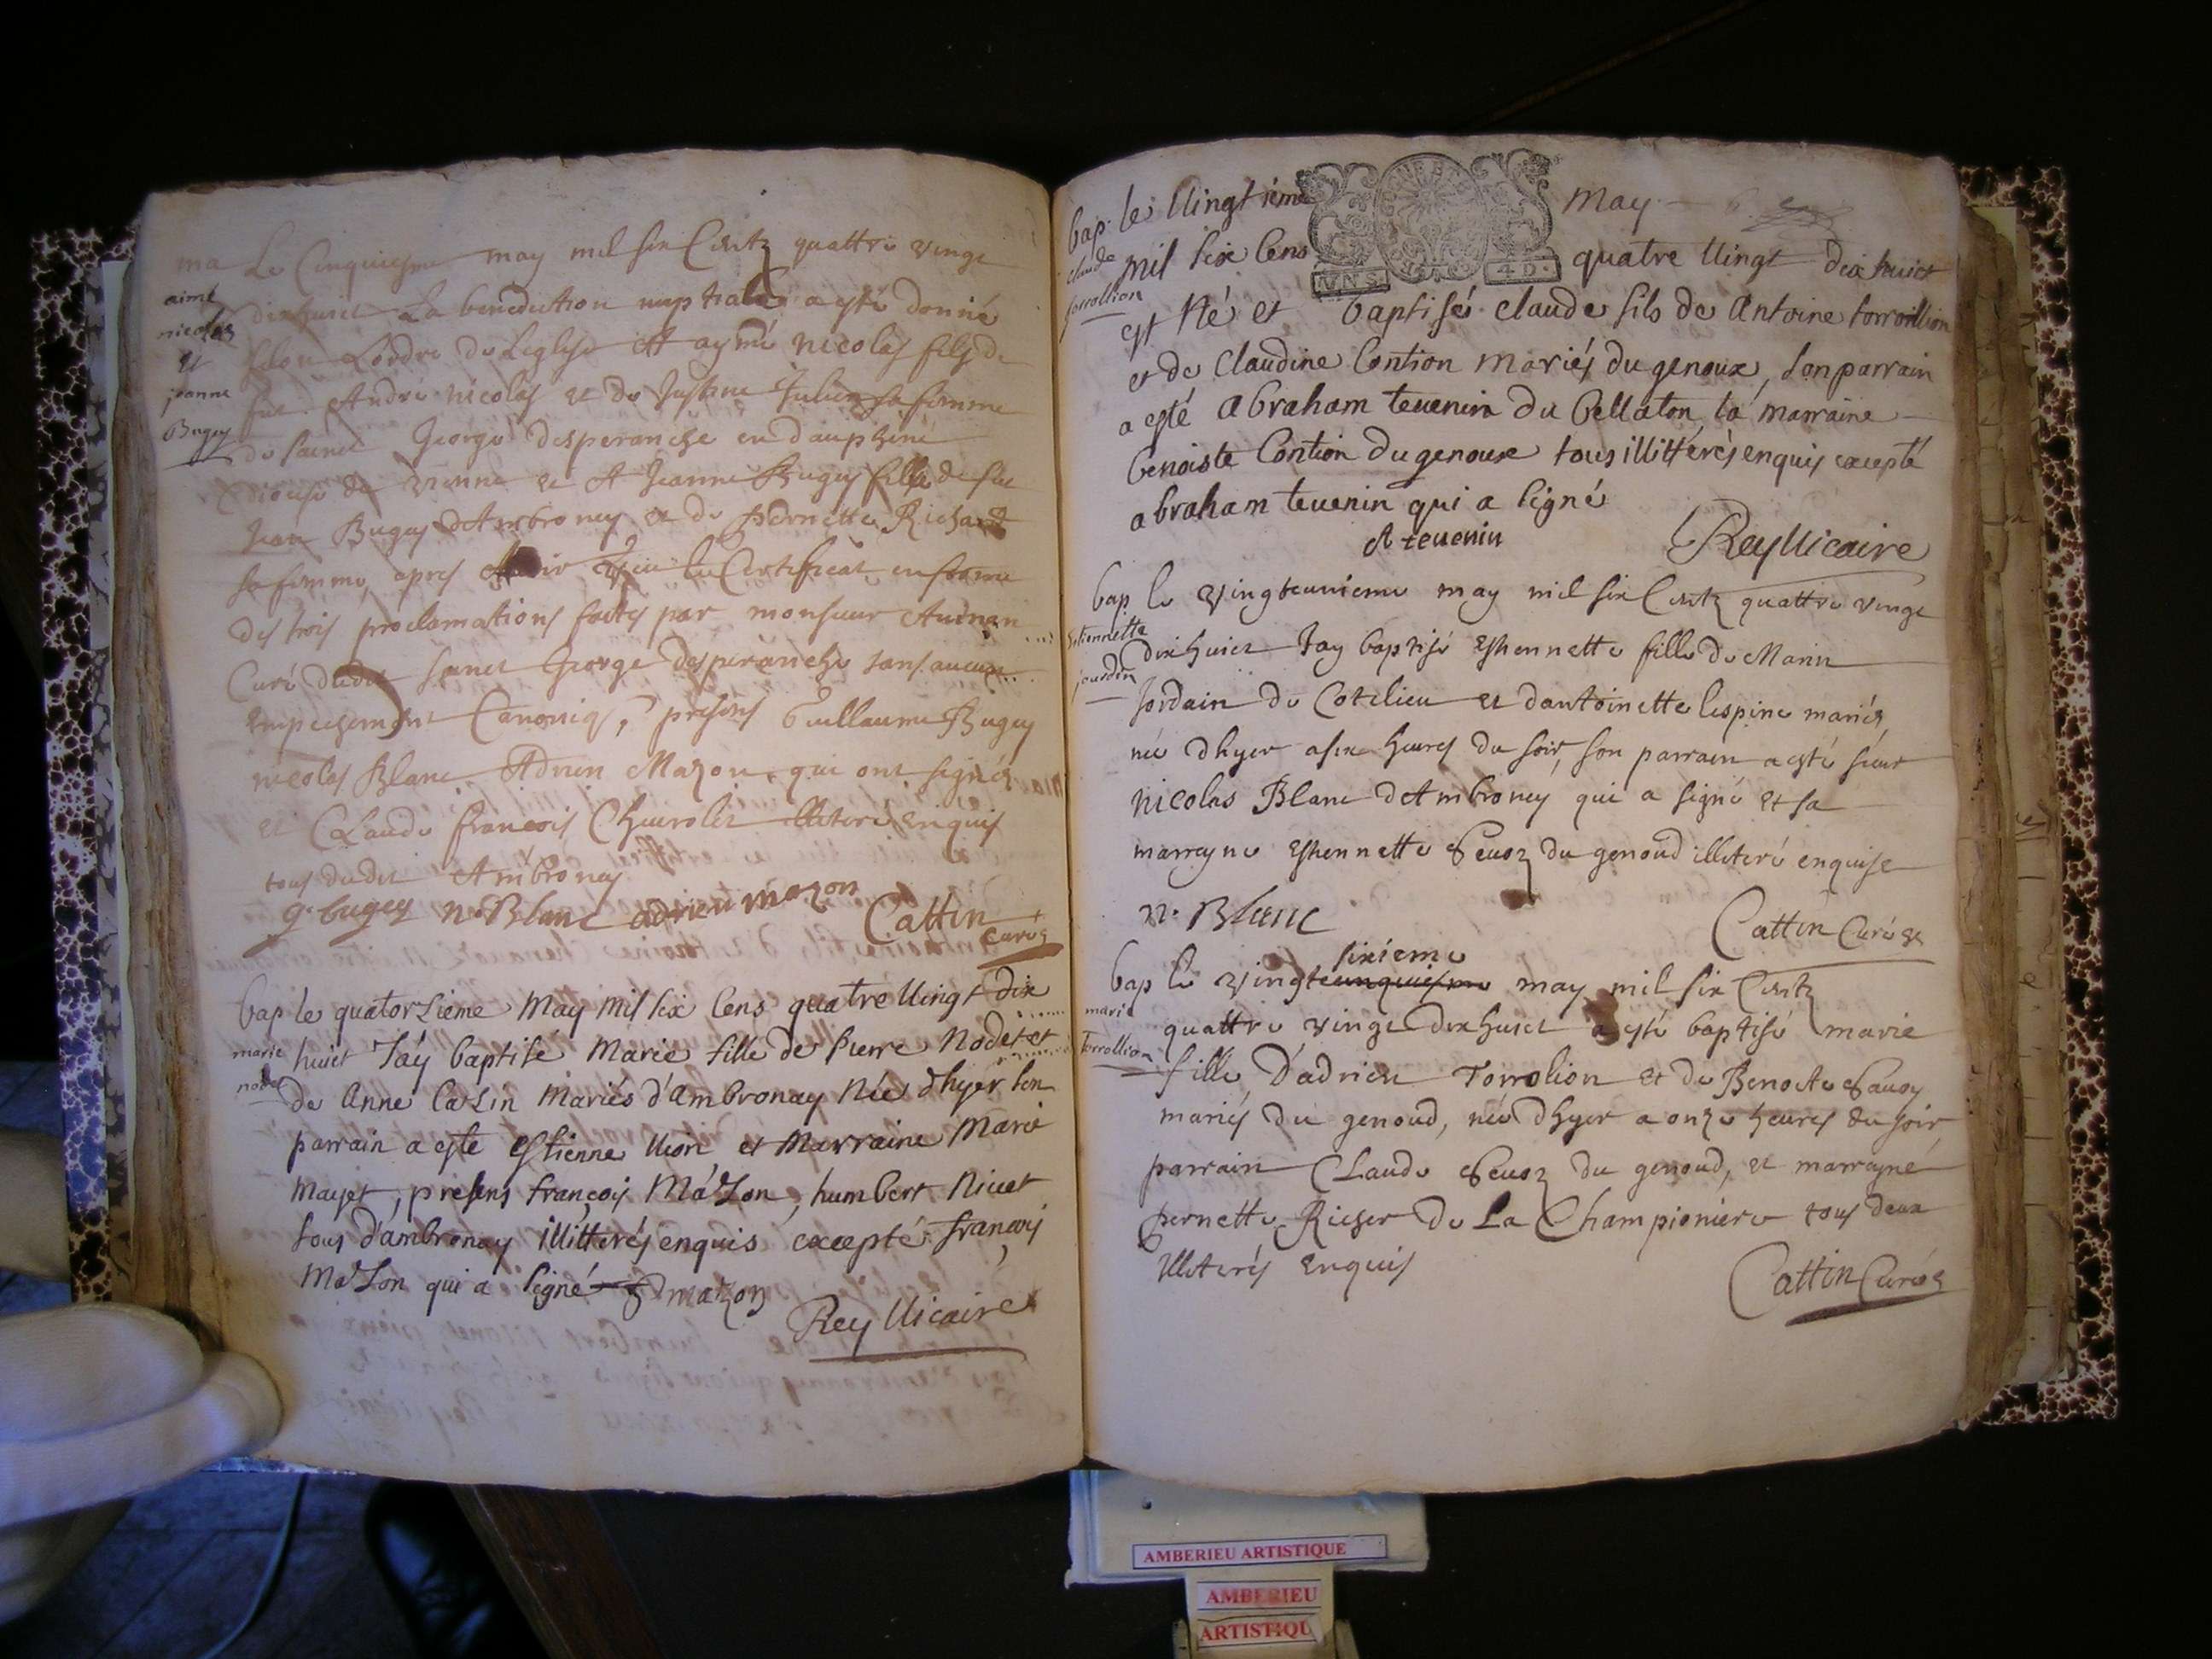 ma Le Cinquiesme may mil six Centz quattre vingt
aimé
nicolas
et
jeanne
Bugey
dixhuict La benediction nuptiale a esté donné
selon Lordre de Leglise A aymé nicolas fils de
fut André nicolas et de Justine Julien sa femme
de sainct George desperanche en dauphiné
diocese de vienne et A Jeanne Bugey fille de fut
Jean Bugey dAmbroney et de Pernette Richard
sa femme, apres Avoir veu le Certificat en forme
des trois proclamations faites par monsieur
Curé dudit sainct George desperanche sans aucun
empechement Canoniq, presens Guillaume Bugey
nicolas Blanc Adrien Mazon qui ont signés
et Claude francois illiteré enquis
tous dudit Ambroney
g. bugey n. Blanc adrien mazon Cattin
Curé
bap le quatorzieme May mil six Cens quatre Vingt dix
marie
nodet
huict J'áy baptisé Marie fille de Pierre Nodet et
de Anne Cazin Mariés d'Ambronay Née d'hyer son
parrain a esté Estienne et Marraine Marie
Mayet, presens françois Mazon, humbert Nivet
tous d'ambronay illitterés enquis excepté françois
Mazon qui a signé f mazon
Rey Vicaire
bap. le Vingtieme May
claude
torrollion
mil six Cens quatre Vingt dix huict
GNE
4 D.
est Né et baptisé claude fils de Antoine torrollion
et de Claudine Contion mariés du genoux, son parrain
a esté Abraham tevenin du Bellaton la marraine
benoiste Contion du genoux tous illittérés enquis excepté
abraham tevenin qui a signé
A tevenin Rey Vicaire
bap le vingteunieme may mil six Centz quattre vingt
estiennette
jourdin
dixhuict Jay baptisé Estiennette fille de Marin
Jordain de Cotelieu et dantoinette lespine mariés
née dhyer a six heures du soir, son parrain a esté sieur
nicolas Blanc dAmbroney qui a signé et sa
marrayne Estiennette du genoud illiteré enquise
n. Blanc Cattin Curé
sixieme
bap le vingtcinquiesme may mil six Centz
marie
Torrollion
quattre vingt dixhuict a esté baptisé marie
fille D'adrien Torrolion et de Benoite
mariés du genoud, née dhyer a onze heures du soir
parrain Claude du genoud, et marrayne
pernette Richer de La Championiere tous deux
illiterés enquis
Cattin Curé
AMBERIEU ARTISTIQUE
AMBERIEU
ARTISTIQU